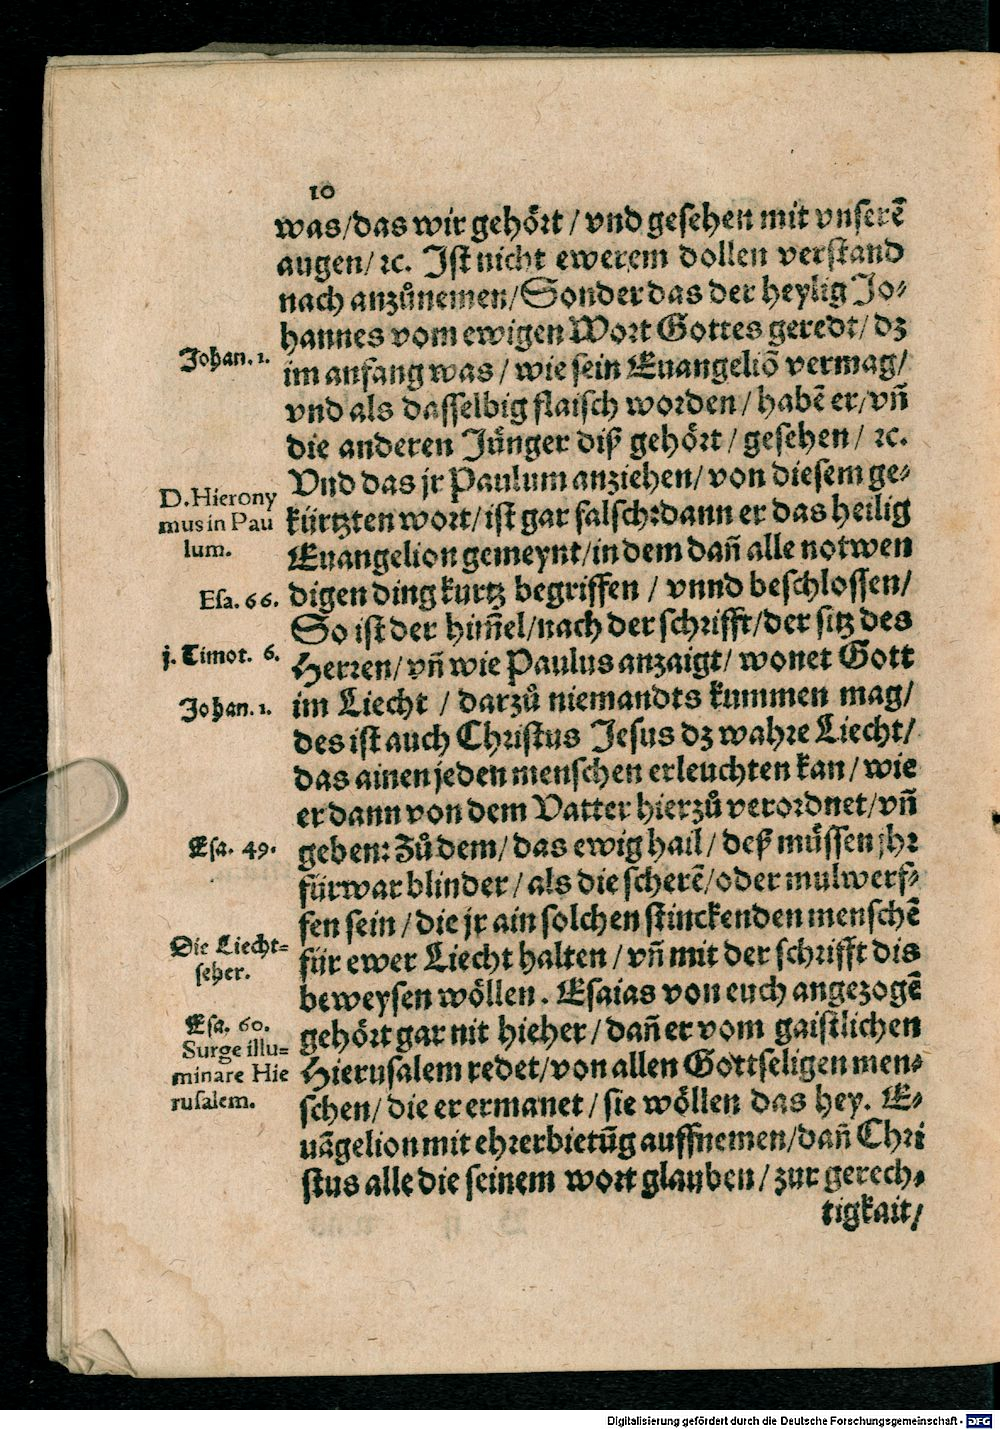 10
was/das wir gehoͤrt/ vnd gesehen mit vnserẽ
augen/ ꝛc. Ist nicht ewerem dollen verstand
nach anzuͤnemen/ Sonder das der heylig Jo⸗
hannes vom ewigen Wort Gottes geredt/ dz
Johan. 1.
im anfang was/ wie sein Euangeliõ vermag/
vnd als dasselbig flaisch worden/ habẽ er/ vñ
die anderen Juͤnger diß gehoͤrt/ gesehen/ ꝛc.
Vnd das jr Paulum anziehen/ von diesem ge⸗
D. Hierony
mus in Pau
lum.
kürtzten wort/ ist gar falsch: dann er das heilig
Euangelion gemeynt/ in dem dañ alle notwen
Esa. 66.
digen ding kurtz begriffen/ vnnd beschlossen/
So ist der him̃el/ nach der schrifft/ der sitz des
j. Timot. 6.
Herren/ vñ wie Paulus anzaigt/ wonet Gott
Johan. 1.
im Liecht/ darzuͦ niemandts kummen mag/
des ist auch Christus Jesus dz wahre Liecht/
das ainen jeden menschen erleuchten kan/ wie
er dann von dem Vatter hierzuͦ verordnet/ vñ
Esa. 49.
geben: Zuͦ dem/ das ewig hail/ deß muͤssen jhr
fürwar blinder/ als die scherẽ/ oder mulwerf⸗
fen sein/ die jr ain solchen stinckenden menschẽ
Die Liecht⸗
seher.
für ewer Liecht halten/ vñ mit der schrifft dis
beweysen woͤllen. Esaias von euch angezogẽ
Esa. 60.
Surge illu⸗
minare Hie
rusalem.
gehoͤrt gar nit hieher/ dañ er vom gaistlichen
Hierusalem redet/ von allen Gottseligen men⸗
schen/ die er ermanet/ sie woͤllen das hey. E⸗
uãgelion mit ehrerbietũg auffnemen/ dañ Chri
stus alle die seinem wort glauben/ zur gerech⸗
tigkait/
Digitalisierung gefördert durch die Deutsche Forschungsgemeinschaft - DFG